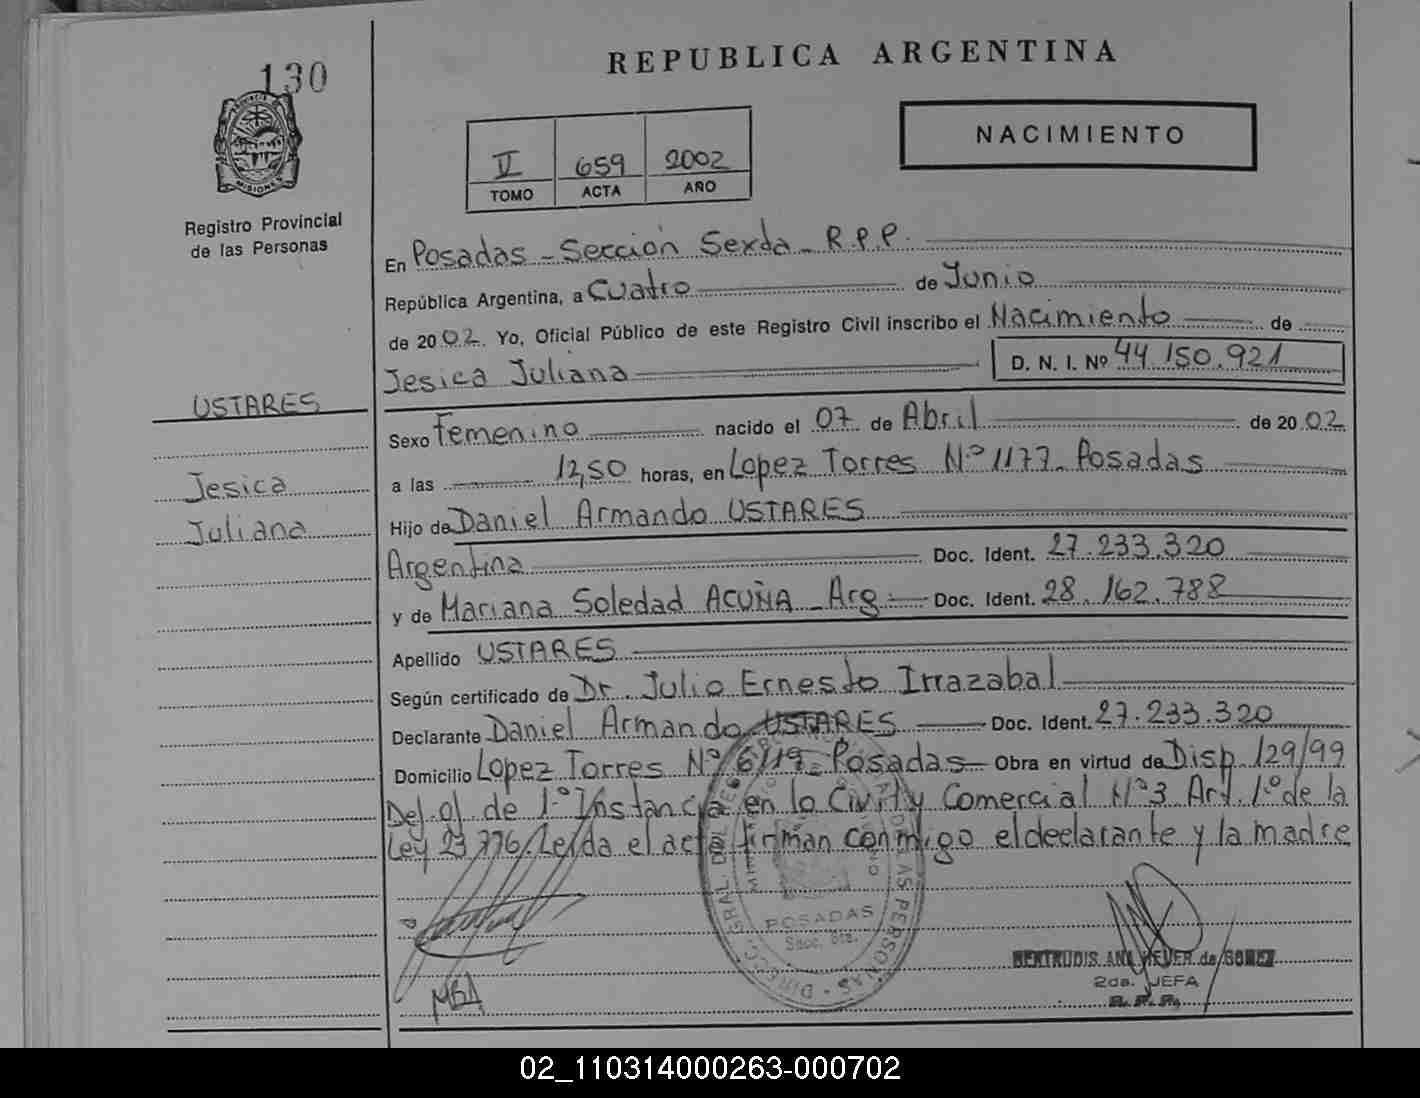 130
REPUBLICA ARGENTINA
PROVINCIA DE
MISIONES
Registro Provincial
de las Personas
II 659 2002
TOMO ACTA AÑO
NACIMIENTO
En Posadas - Sección Sexta - R.P.P.
República Argentina, a Cuatro de Junio
de 2002. Yo, Oficial Público de este Registro Civil inscribo el Nacimiento de
Jesica Juliana D. N. I. Nº 44.150.921
USTARES
Jesica
Juliana
Sexo Femenino nacido el 07 de Abril de 2002
a las 12,50 horas, en Lopez Torres N.º 1177. Posadas
Hijo de Daniel Armando USTARES
Argentina Doc. Ident. 27.233.320
y de Mariana Soledad ACUÑA - Arg. Doc. Ident. 28.162.788
Apellido USTARES
Según certificado de Dr. Julio Ernesto Irrazabal
Declarante Daniel Armando USTARES Doc. Ident. 27.233.320
Domicilio Lopez Torres Nº 6119 - Posadas Obra en virtud de Disp. 129/99
de 1.º Instancia en lo Civil y Comercial Nº 3 Art. 1.º de la
Ley 23.776/Leída el acta firman conmigo el declarante y la madre
POSADAS
Secc. 6ta.
MBA
GERTRUDIS ANA de GOMEZ
2da. JEFA
R. P. P.
02_110314000263-000702